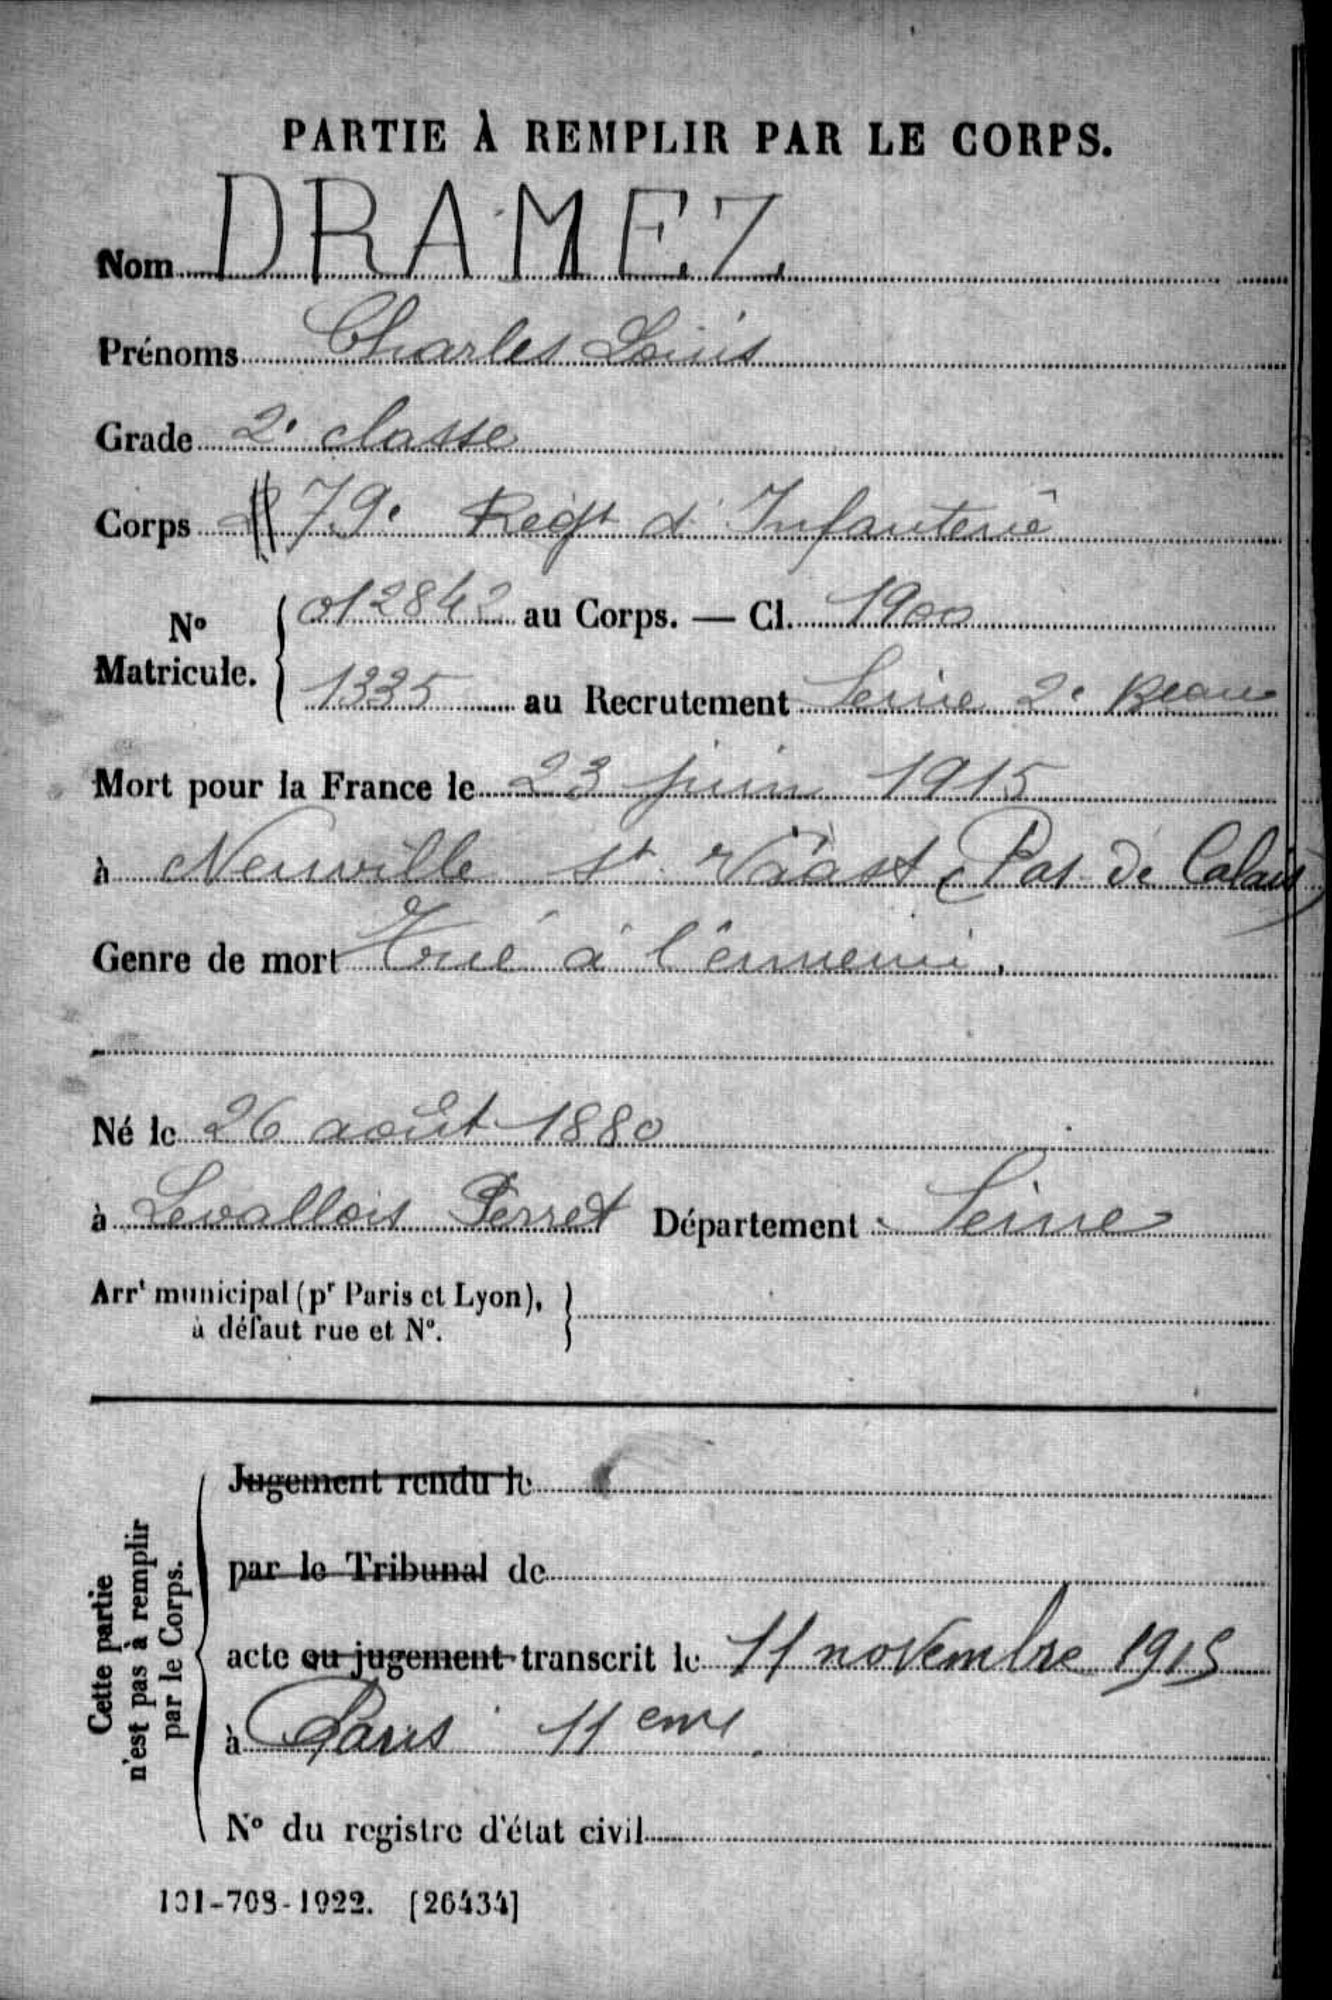 PARTIE À REMPLIR PAR LE CORPS.
Nom DRAMEZ
Prénoms Charles Louis
Grade 2e classe
Corps 79e Regt d'Infanterie
No Matricule. 012842 au Corps. — Cl. 1900
1335 au Recrutement Seine 2e Beau
Mort pour la France le 23 juin 1915
à Neuville St Vaast (Pas de Calais)
Genre de mort Tué à l'ennemi.
Né le 26 août 1880
à Levallois Perret Département Seine
Arrt municipal (pr Paris et Lyon),
à défaut rue et No.
Cette partie
n'est pas à remplir
par le Corps.
Jugement rendu le
par le Tribunal de
acte ou jugement transcrit le 11 novembre 1915
à Paris 11eme
No du registre d'état civil
101-708-1922. [26434]